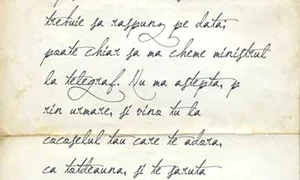 trebuie sa raspunz pe data,
poate chiar sa ma cheme ministrul
la telegraf. Nu ma astepta, p
rin urmare, si vino tu la
cocoselul tau care te adora,
ca totdeauna, si te saruta